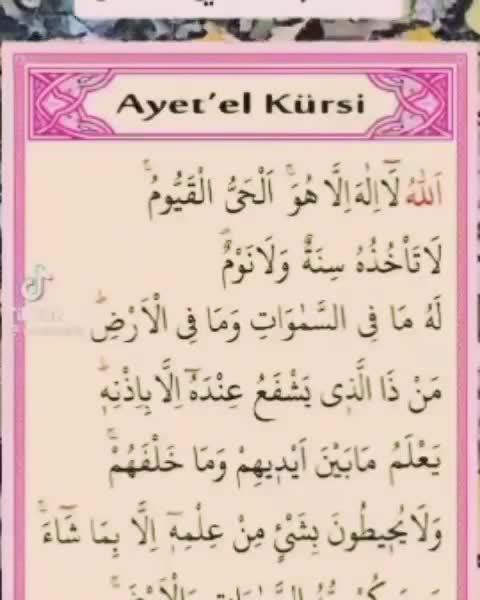 Ayet'el Kürsi
اَللّٰهُ لَٓا اِلٰهَ اِلَّا هُوَۚ اَلْحَىُّ الْقَيُّومُۚ
لَا تَأْخُذُهُ سِنَةٌ وَلَا نَوْمٌۜ
لَهُ مَا فِى السَّمٰوَاتِ وَمَا فِى الْاَرْضِۜ
مَنْ ذَا الَّذ۪ى يَشْفَعُ عِنْدَهُٓ اِلَّا بِاِذْنِه۪ۜ
يَعْلَمُ مَا بَيْنَ اَيْد۪يهِمْ وَمَا خَلْفَهُمْۚ
وَلَا يُح۪يطُونَ بِشَىْءٍ مِنْ عِلْمِه۪ٓ اِلَّا بِمَا شَٓاءَۚ